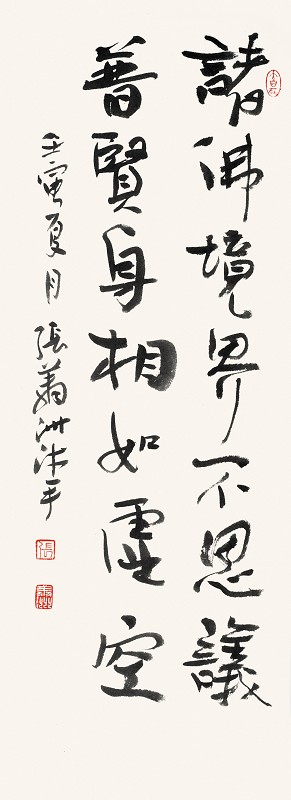 諸佛境界不思議
普賢身相如虛空
壬寅夏月張蕭洲沐手
張